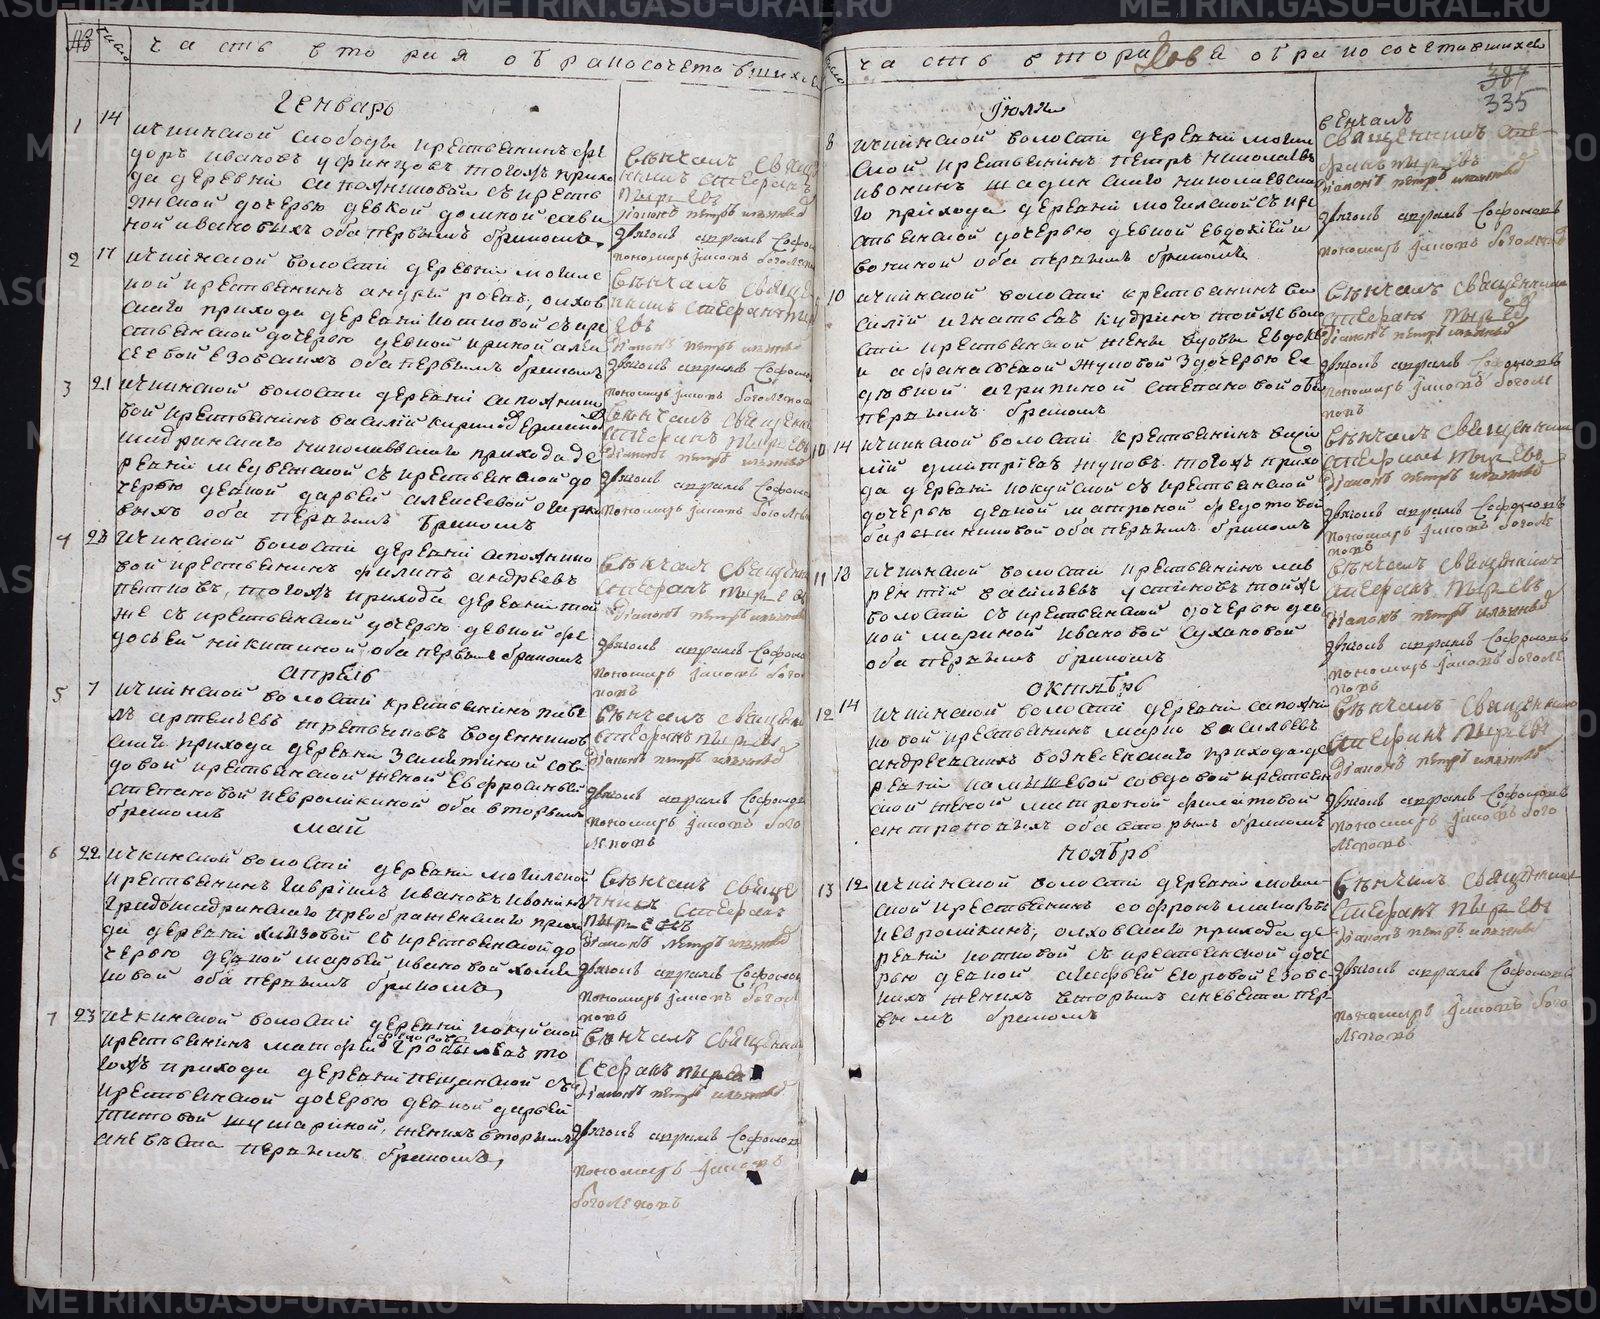 часть вторая о бракосочетавшихся
Генварь
1 14 ичкинской слободы крестьянинъ фе
доръ ивановъ уфинцовъ тогожъ прихо
да деревни сапожниковой съ кресть
янской дочерью девкой домной сави
ной ивановыхъ оба первымъ бракомъ
венчалъ свяще
никъ стефанъ
пырьевъ
діаконъ петръ
дьячокъ авраамъ софоно
пономарь іаковъ боголепо
2 17 ичкинской волости деревни могиле
кой крестьянинъ андрей
скаго прихода деревни котковой съ кре
стьянской дочерью девкой ириной алек
сеевой езовскихъ оба первымъ бракомъ
венчалъ свяще
никъ стефанъ пыр
евъ
діаконъ петръ
дьячокъ авраамъ софоно
пономарь іаковъ боголепо
3 21 ичкинской волости деревни сапожнико
вой крестьянинъ василій кириловъ
шадринскаго николаевскаго прихода де
ревни медвенской съ крестьянской до
черью девкой дарьей алексеевой
выхъ оба первымъ бракомъ
венчалъ священ
стефанъ пырьевъ
діаконъ петръ
дьячокъ авраамъ софоно
пономарь іаковъ боголепо
4 23 ичкинской волости деревни сапожнико
вой крестьянинъ филипъ андреевъ
петковъ, тогожъ прихода деревни той
же съ крестьянской дочерью девкой фе
досьей никитиной, оба первымъ бракомъ
венчалъ священ
стефанъ пырьевъ
діаконъ петръ
дьячокъ авраамъ софоно
пономарь іаковъ бого
леповъ
апрель
5 7 ичкинской волости крестьянинъ паве
лъ артемьевъ третьяковъ воденников
скаго прихода деревни замятиной со в
довой крестьянской женой евфросиньей
степановой кевролякиной оба вторымъ
бракомъ
венчалъ священ
стефанъ пырьевъ
діаконъ петръ
дьячокъ авраамъ софоно
пономарь іаковъ бого
леповъ
май
6 22 ичкинской волости деревни могильской
крестьянинъ гаврилъ ивановъ ивонинъ
градошадринскаго преображенскаго прихо
да деревни хлызовой съ крестьянской до
черью девкой марьей ивановой
новой оба первымъ бракомъ,
венчалъ свяще
никъ стефанъ
пырьевъ
діаконъ петръ
дьячокъ авраамъ софоно
пономарь іаковъ богол
повъ
7 23 ичкинской волости деревни кокуйской
крестьянинъ матфей то
гожъ прихода деревни пещанской съ
крестьянской дочерью девкой дарьей
титовой шушариной, женихъ вторымъ
а невеста первымъ бракомъ,
венчалъ священ
стефанъ пырье
діаконъ петръ
дьячокъ авраамъ софоно
пономарь іаковъ
боголеповъ
часть втори о бракосочетавшихся
387
335
іюля
8 ичкинской волости деревни могиль
ской крестьянинъ петръ николаевъ
ивонинъ шадринскаго николаевска
го прихода деревни могилской съ кре
стьянской дочерью девкой евдокіей и
вониной оба первымъ бракомъ
венчалъ
священникъ сте
фанъ пырьевъ
діаконъ петръ
дьячокъ авраамъ софоновъ
пономарь іаковъ боголепов
10 ичкинской волости крестьянинъ ва
силій игнатьевъ кудринъ той же воло
сти крестьянской жены вдовы евдок
и афанасьевой жуковой з дочерью ее
девкой агрипиной степановой оба
первымъ бракомъ
венчалъ священник
стефанъ пырьев
діаконъ петръ
дьячокъ авраамъ софоновъ
пономарь іаковъ боголе
повъ
10 14 ичкинской волости крестьянинъ васи
лій дмитріевъ жуковъ тогожъ прихо
да деревни кокуйской съ крестьянской
дочерью девкой матроной федотовой
барышниковой оба первымъ бракомъ
венчалъ священник
стефанъ пырьевъ
діаконъ петръ
дьячокъ авраамъ софоновъ
пономарь іаковъ боголе
повъ
11 18 ичкинской волости крестьянинъ лав
рентій васильевъ устиновъ той же
волости съ крестьянской дочерью дев
кой мариной ивановой сухановой
оба первымъ бракомъ
венчалъ священникъ
стефанъ пырьевъ
діаконъ петръ
дьячокъ авраамъ софоновъ
пономарь іаковъ боголе
повъ
октябрь
12 14 ичкинской волости деревни сапожни
ковой крестьянинъ марко васильевъ
андреевскихъ вознесенскаго прихода де
ревни камышевой со вдовой крестьян
ской женой матроной филатовой
антроповыхъ оба вторымъ бракомъ
венчалъ священник
стефанъ пырьевъ
діаконъ петръ
дьячокъ авраамъ софоновъ
пономарь іаковъ бого
леповъ
ноябрь
13 12 ичкинской волости деревни могиль
ской крестьянинъ софронъ макаровъ
кевролякинъ, ольховскаго прихода де
ревни котковой съ крестьянской доче
рью девкой егоровой езовс
кихъ женихъ вторымъ а невеста пер
вымъ бракомъ
венчалъ священник
стефанъ пырьевъ
діаконъ петръ
дьячокъ авраамъ софоновъ
пономарь іаковъ бого
леповъ
METRIKI.GASU-URAL.RU